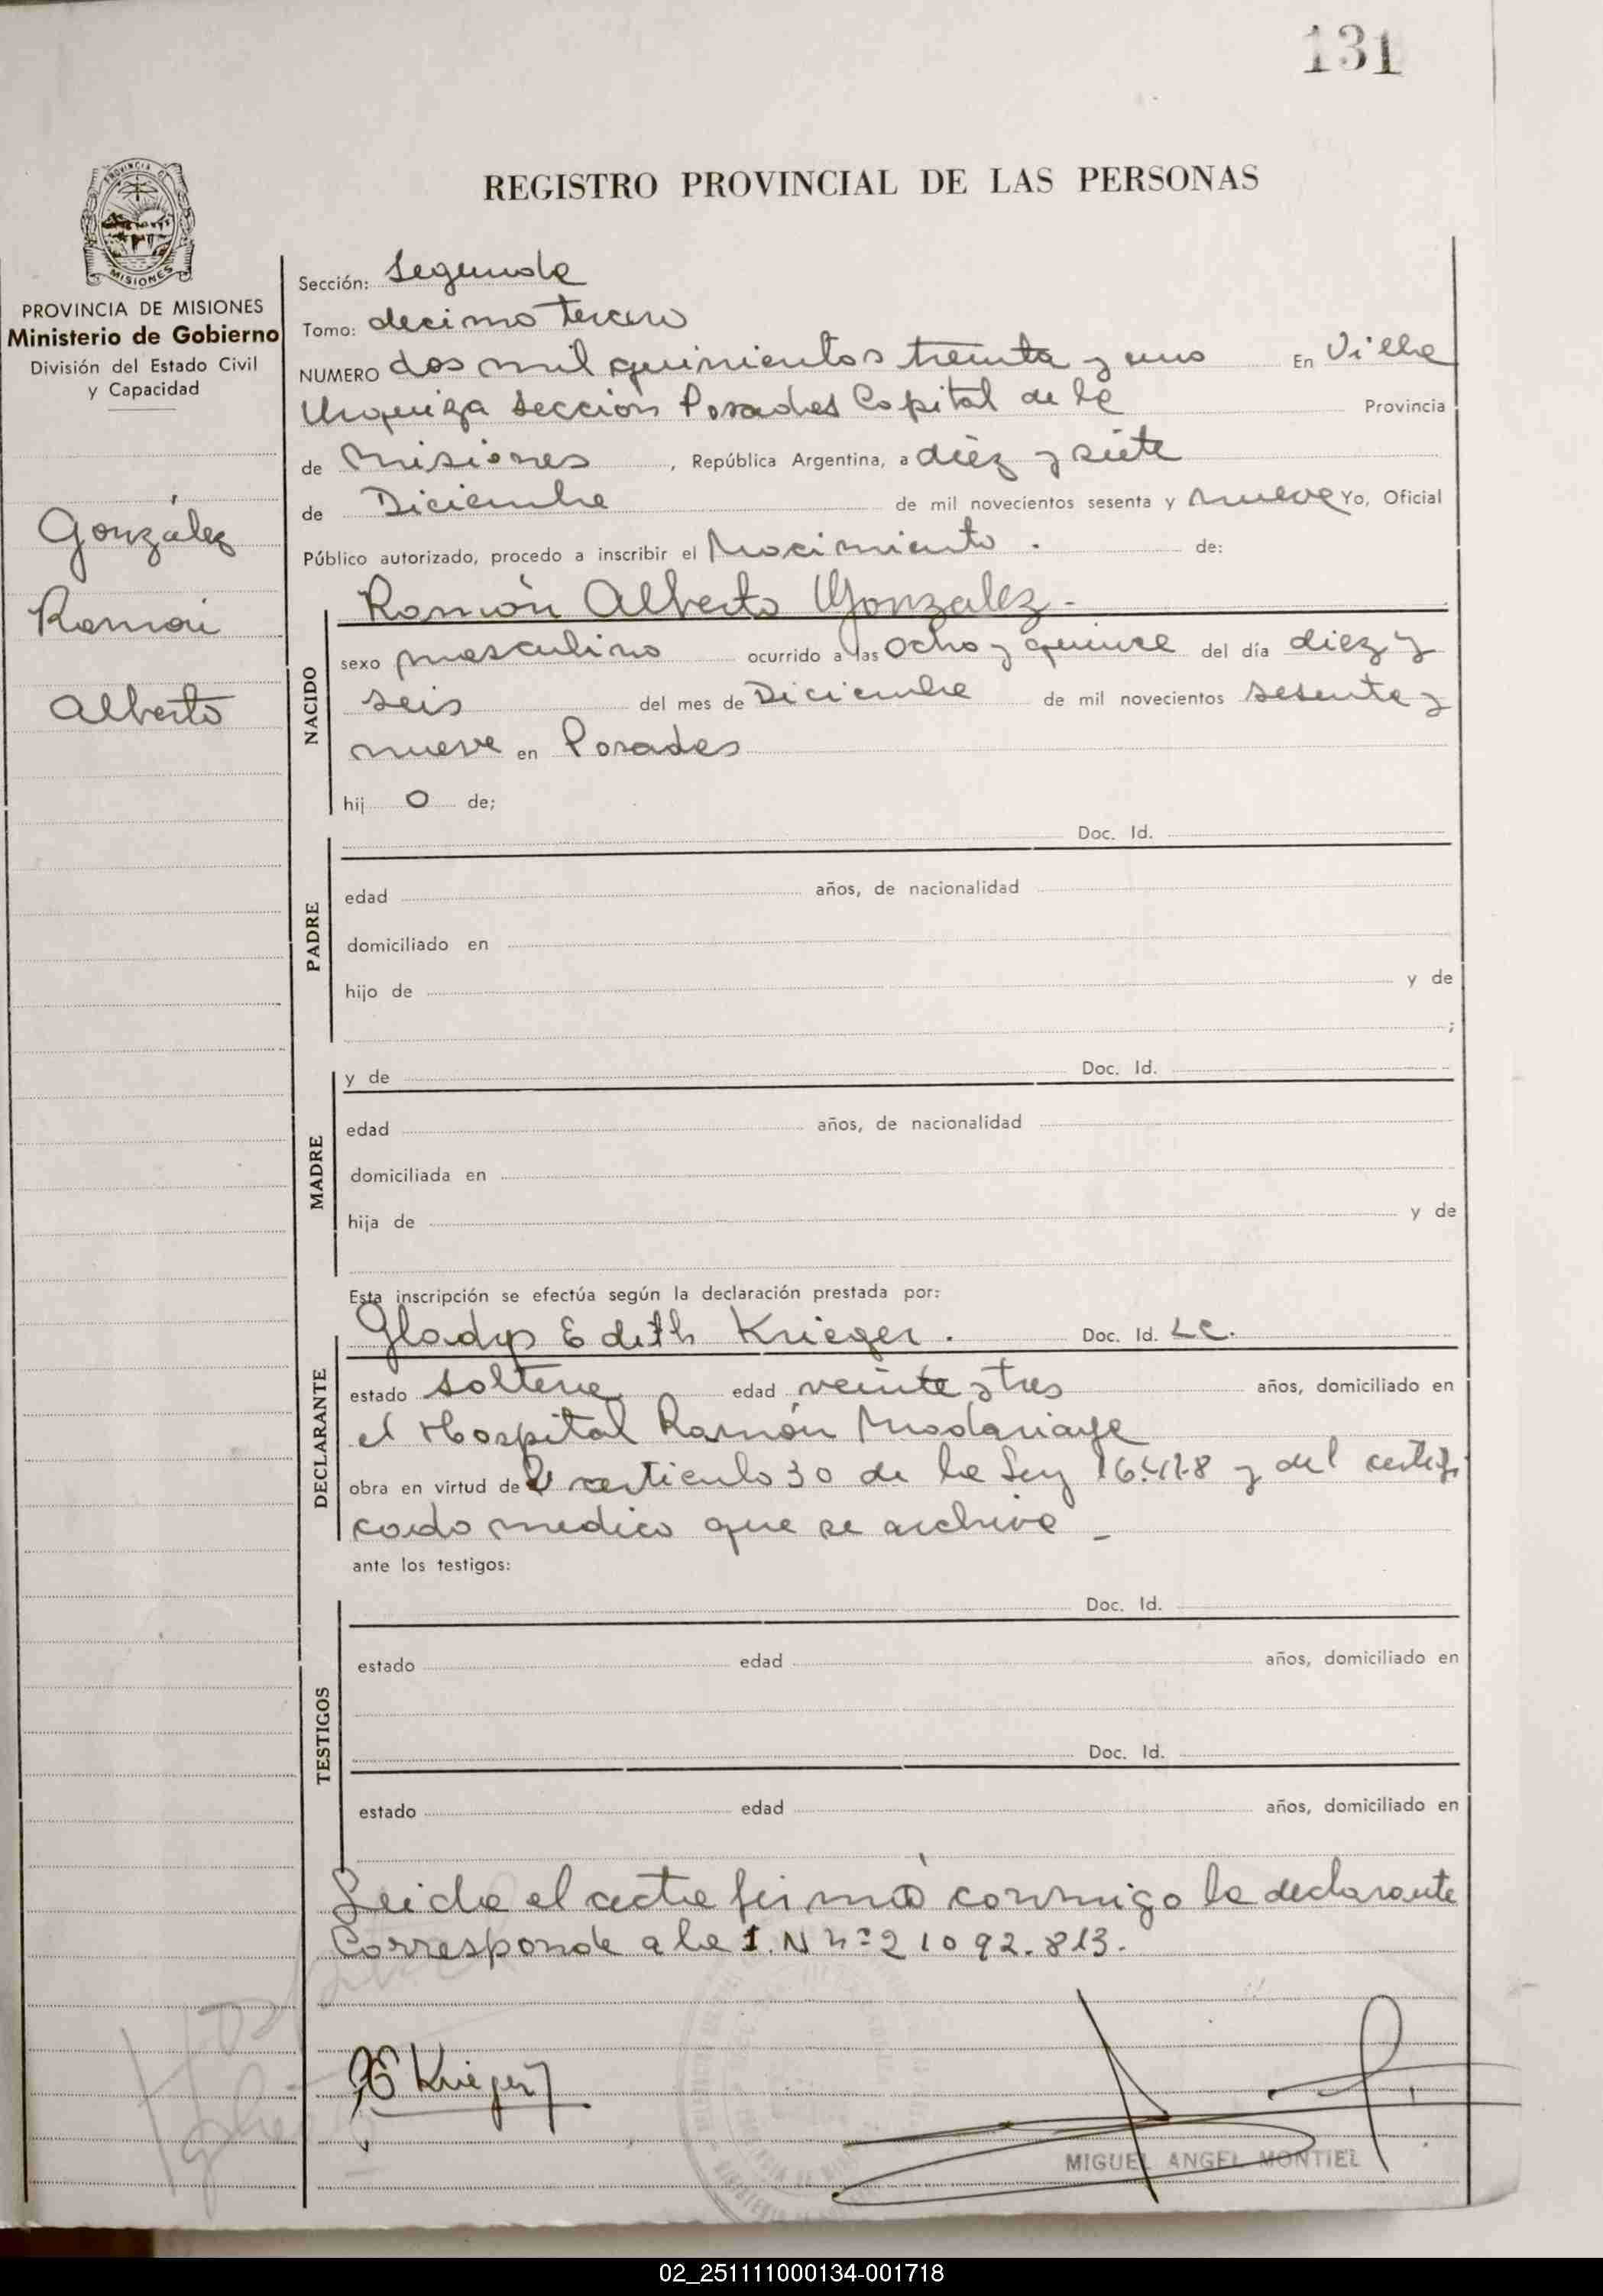 131
REGISTRO PROVINCIAL DE LAS PERSONAS
PROVINCIA DE MISIONES
Ministerio de Gobierno
División del Estado Civil
y Capacidad
González
Ramón
Alberto
Sección: Segunda
Tomo: decimo tercero
NUMERO dos mil quinientos treinta y uno En Villa
Urquiza Sección Posadas Capital de la Provincia
de Misiones, República Argentina, a diez y siete
de Diciembre de mil novecientos sesenta y nueve Yo, Oficial
Público autorizado, procedo a inscribir el Nacimiento. de:
Ramón Alberto Gonzalez.-
NACIDO
sexo masculino ocurrido a las ocho y quince del día diez y
seis del mes de Diciembre de mil novecientos sesenta y
nueve en Posadas
hij o de;
Doc. Id.
PADRE
edad años, de nacionalidad
domiciliado en
hijo de y de
;
y de Doc. Id.
MADRE
edad años, de nacionalidad
domiciliada en
hija de y de
Esta inscripción se efectúa según la declaración prestada por:
Gladys Edith Krieger. Doc. Id. LC.
DECLARANTE
estado soltera edad veinte y tres años, domiciliado en
el Hospital Ramón Madariaga
obra en virtud del articulo 30 de la Ley 16.478 y del certifi
cado medico que se archiva -
ante los testigos:
Doc. Id.
TESTIGOS
estado edad años, domiciliado en
Doc. Id.
estado edad años, domiciliado en
Leida el acta firmó conmigo la declarante
Corresponde a la I.N nº 21092.813.
GE Krieger
MIGUEL ANGEL MONTIEL
02_251111000134-001718